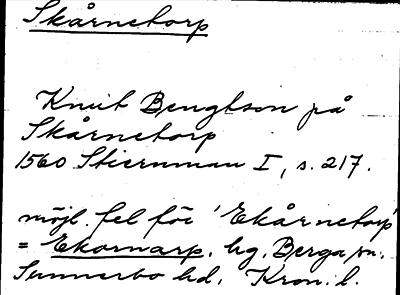 Skårnetorp
Knut Bengtson på
Skårnetorp
1560 Stiernman I, s. 217.
möjl. fel för 'Ekårnetorp'
= Ekornarp, hg, Berga sn.
Sunnerbo hd, Kron. l.